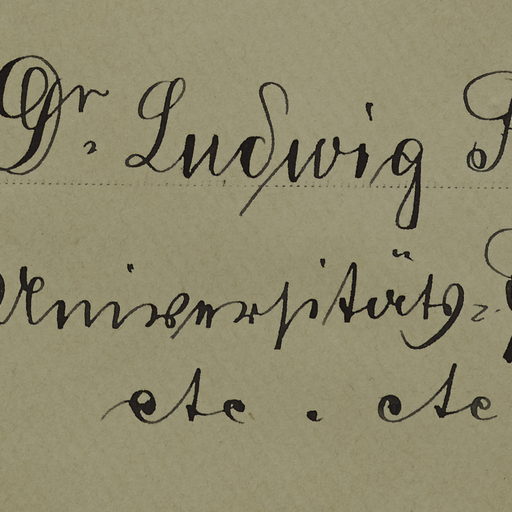 Dr. Ludwig
Universitäts-
etc . etc